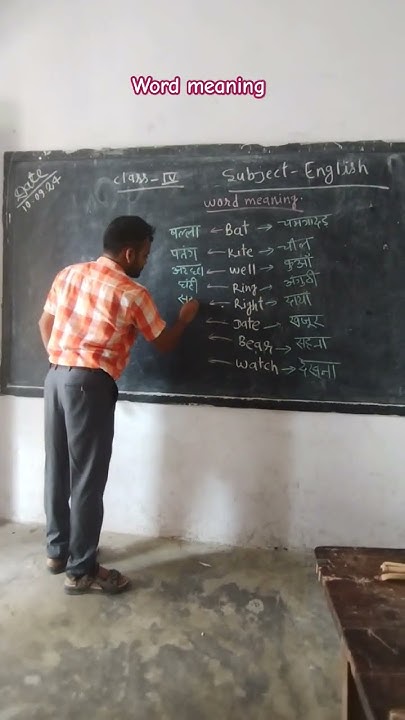 Word meaning
Date
10.09.24
Class - IV
Subject - English
word meaning
बल्ला ← Bat → चमगादड़
पतंग ← Kite → चील
अच्छा ← well → कुआँ
घंटी ← Ring → अंगुठी
← Right → दायाँ
← Date → खजूर
← Bear → सहना
← Watch → देखना